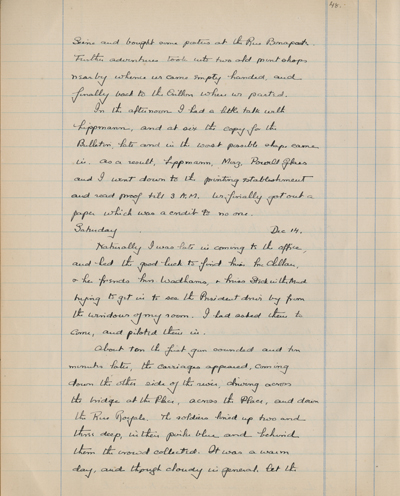 40.
Seine and bought some posters at the Rue Bonaparte.
Further adventures took into two old print shops
nearby whence we came empty handed, and
finally back to the Crillon where we parted.
In the afternoon I had a little talk with
Lippmann, and at six the copy for the
Bulletin, late and in the worst possible shape came
in. As a result, Lippmann, Merz,
and I went down to the printing establishment
and read proof till 3 A.M. We finally got out a
paper which was a credit to no one.
Saturday Dec 14.
Naturally I was late in coming to the office,
and had the good luck to find
friends Mrs Wadhams, & Miss
trying to get in to see the President drive by from
the windows of my room. I had asked them to
come, and piloted them in.
About ten the first gun sounded and ten
minutes later, the carriages appeared, coming
down the other side of the river, driving across
the bridge at the Place, across the Place, and down
the Rue Royale. The soldiers lined up two and
three deep, in their pale blue and behind
them the crowd collected. It was a warm
day, and though cloudy in general let the